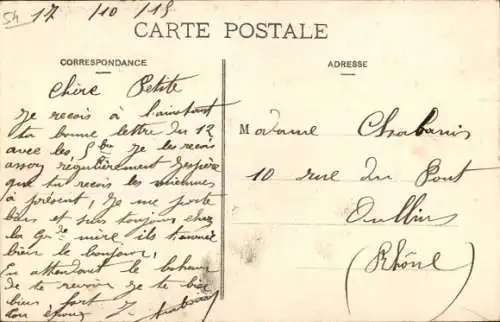 54
17 /10 /15
CARTE POSTALE
CORRESPONDANCE
ADRESSE
Chère Petite
Je recois à l'ainstant
ta bonne lettre du 12
avec les 5 Je les recois
assey régulièrement J'espère
que tu recois les miennes
à présent, Je me porte
bien et suis toujours chez
la Gde mère ils t'envoie
bien le bonjour,
En attendant le bonheur
de te revoir Je te bise
bien fort
ton époux J. Chabanis
Madame Chabanis
10 rue du Pont
Oullins
(Rhône)